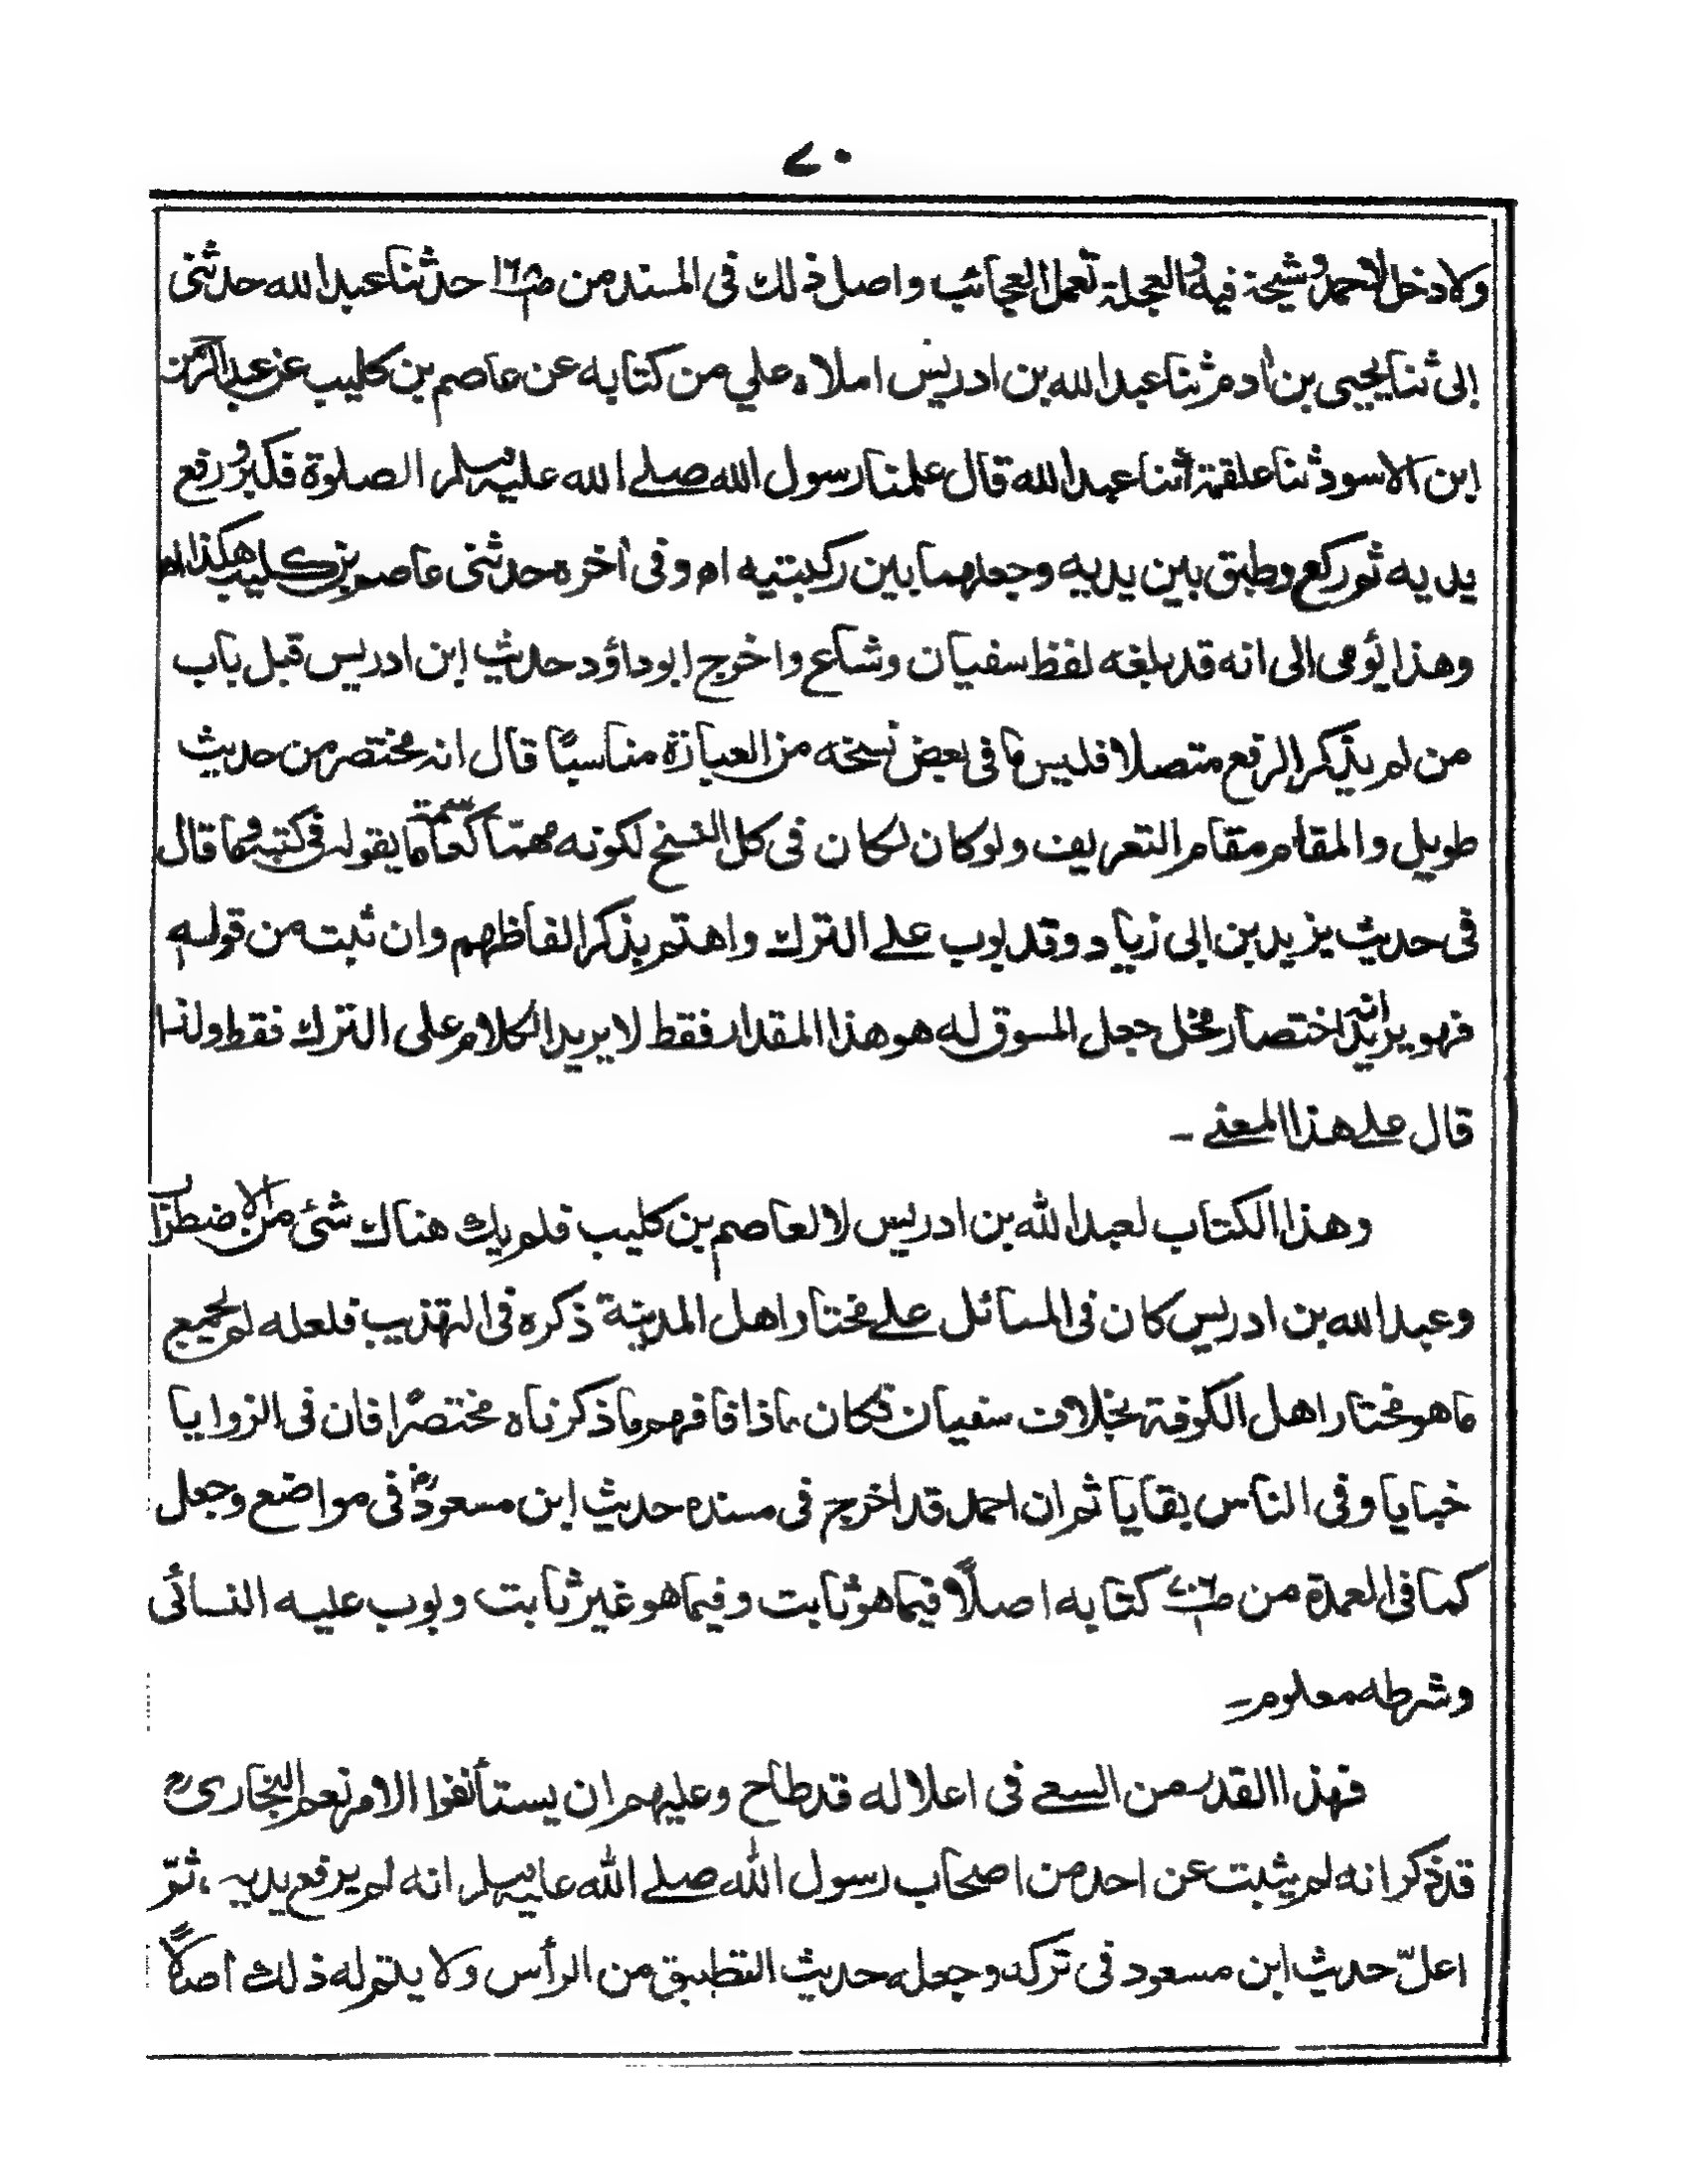 ٧٠
ولا دخل لاحمد وشيخه فيه والعجلة تعمل العجائب واصل ذلك فى المسند من حدثنا عبد الله حدثنى
ابى ثنا يحيى بن اٰدم ثنا عبد الله بن ادريس املاه علي من كتابه عن عاصم بن كليب عن عبد الرحمن
ابن الاسود ثنا علقمة ثنا عبد الله قال علمنا رسول الله صلے الله عليه وسلم الصلوة فكبر ورفع
يديه ثم ركع وطبق بين يديه وجعلهما بين ركبتيه اه وفى اٰخره حدثنى عاصم بن كليب هكذا اه
وهذا يؤمى الى انه قد بلغه لفظ سفيان وشاع واخرج ابو داؤد حديث ابن ادريس قبل باب
من لم يذكر الرفع متصلا فليس ما فى بعض نسخه من العبارة مناسبًا قال انه مختصر من حديث
طويل والمقام مقام التعريف ولو كان لكان فى كل النسخ لكونه مهتما كعامة ما يقوله فى كتبه وما قال
فى حديث يزيد بن ابى زياد وقد بوب علے الترك واهتم بذكر الفاظهم وان ثبت من قوله
فهو يريد انه اختصار مخل جعل المسوق له هو هذا المقدار فقط لا يريد الكلام على الترك فقط ولذا
قال علے هذا المعنے ۔
وهذا الكتاب لعبد الله بن ادريس لا لعاصم بن كليب فلم يك هناك شئ من الاضطراب
وعبد الله بن ادريس كان فى المسائل علے مختار اهل المدينة ذكره فى التهذيب فلعله لم يجميع
ما هو مختار اهل الكوفة بخلاف سفيان فكان ماذا فافهم ما ذكرناه مختصرًا فان فى الزوايا
خبايا وفى الناس بقايا ثم ان احمد قد اخرج فى مسنده حديث ابن مسعودؓ فى مواضع وجعل
كما فى العمدة من كتابه اصلًا فيما هو ثابت وفيما هو غير ثابت وبوب عليه النسائى
وشرطه معلوم ۔
فهذا القدر من السعے فى اعلاله قد طاح وعليهم ان يستأنفوا الامر نعم البخارىؒ
قد ذكر انه لم يثبت عن احد من اصحاب رسول الله صلے الله عليه وسلم انه لم يرفع يديه، ثمّ
اعلّ حديث ابن مسعود فى تركه وجعله حديث التطبيق من الرأس ولا يلتم له ذلك اصلًا